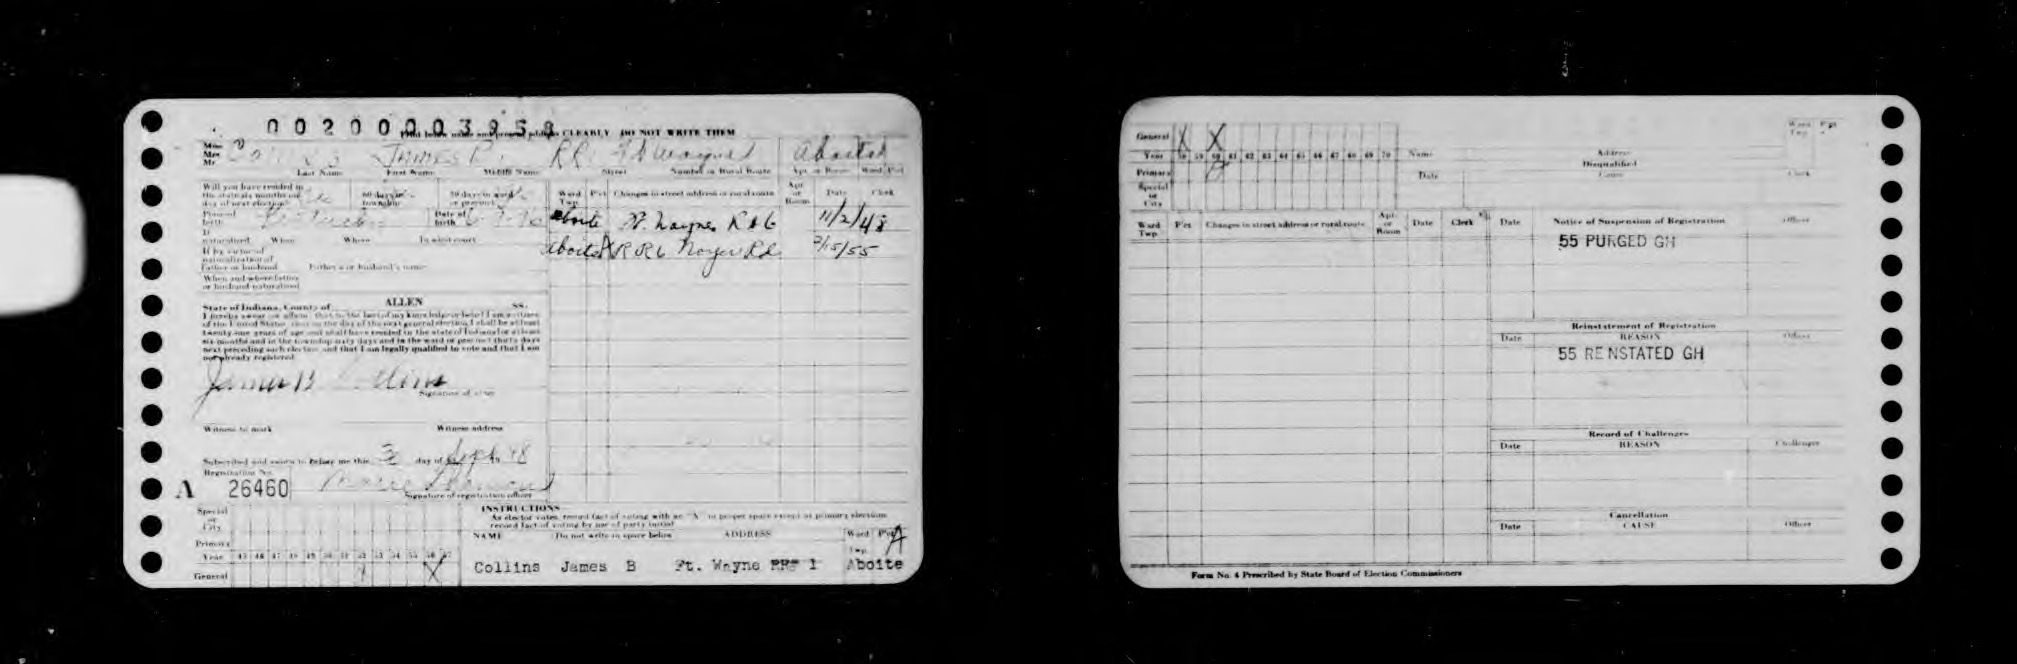 002000039
Print below name and present address CLEARLY DO NOT WRITE THEM
Miss
Mrs
Mr
Collins James B. RR Ft Wayne Aboite
Last Name First Name Middle Name Street Number or Rural Route Apt or Room Ward Pct
Will you have resided in
the state six months on
day of next election
60 days in
township
30 days in ward
or precinct
Place of
birth
Date of
birth
If
naturalized When Where In what court
If by virtue of
naturalization of
Father or husband Father's or husband's name
When and where father
or husband naturalized
Ward
Twp. Pct Changes in street address or rural route Apt
or
Room Date Clerk
Aboite Ft. Wayne R R 6 11/2/48
Aboite RR6 Rd. /15/55
State of Indiana, County of ALLEN SS.
I hereby swear or affirm that to the best of my knowledge or belief I am a citizen
of the United States, that on the day of the next general election I shall be at least
twenty-one years of age and shall have resided in the state of Indiana for at least
six months and in the township sixty days and in the ward or precinct thirty days
next preceding such election and that I am legally qualified to vote and that I am
not already registered
James B Collins
Signature of voter
Witness to mark Witness address
Subscribed and sworn to before me this 3 day of Sept 48
Registration No.
A 26460 Marie
Signature of registration officer
Special
or
City
Primary
Year 45 46 47 48 49 50 51 52 53 54 55 56 57
General X
INSTRUCTIONS
As elector votes, record fact of voting with an "X" in proper space except at primary election
record fact of voting by use of party initial
NAME Do not write in space below ADDRESS Ward
Twp. Pct
A
Collins James B Ft. Wayne RR# 1 Aboite
General X X
Year 58 59 60 61 62 63 64 65 66 67 68 69 70
Primary
Special
or
City
Name Address
Disqualified
Date Cause Clerk
Ward
Twp. Pct
Ward
Twp. Pct Changes in street address or rural route Apt
or
Room Date Clerk
Date Notice of Suspension of Registration Officer
55 PURGED GH
Reinstatement of Registration
Date REASON Officer
55 REINSTATED GH
Record of Challenges
Date REASON Challenger
Cancellation
Date CAUSE Officer
Form No. 4 Prescribed by State Board of Election Commissioners